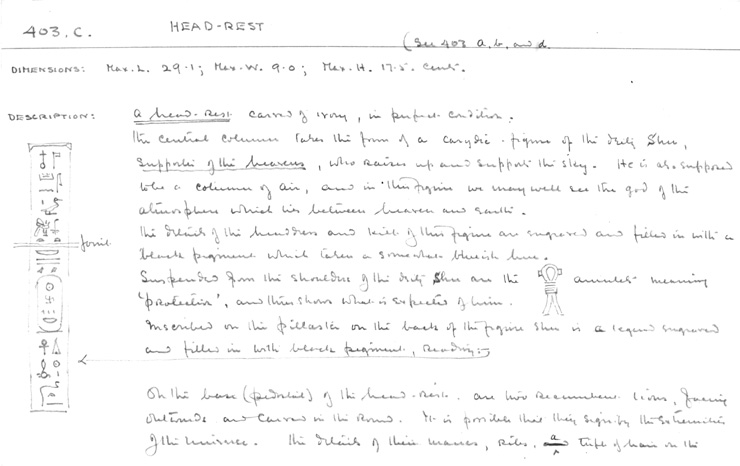 403. C. HEAD-REST
(See 403 a, b, and d.
DIMENSIONS: Max. L. 29.1; Max. W. 9.0; Max. H. 17.5. Cents.
DESCRIPTION: A head-rest carved of ivory, in perfect condition.
The central column takes the form of a caryatid-figure of the deity Shu,
supporter of the heavens, who raises up and supports the sky. He is also supposed
to be a column of air, and in this figure we may well see the god of the
atmosphere which lies between heaven and earth.
The details of the headdress and kilt of this figure are engraved and filled in with a
black pigment which takes a somewhat bluish hue.
Suspended from the shoulders of the deity Shu are the amulets meaning
'protection', and thus shows what is expected of him.
Inscribed on the pillaster on the back of the figure Shu is a legend engraved
and filled in with black pigment, reading:-
joint
On the base (pedestal) of the head-rest are two recumbent lions, facing
outwards and carved in the round. It is possible that they signify the extremities
of the universe. The details of their manes, and tuft of hair on the